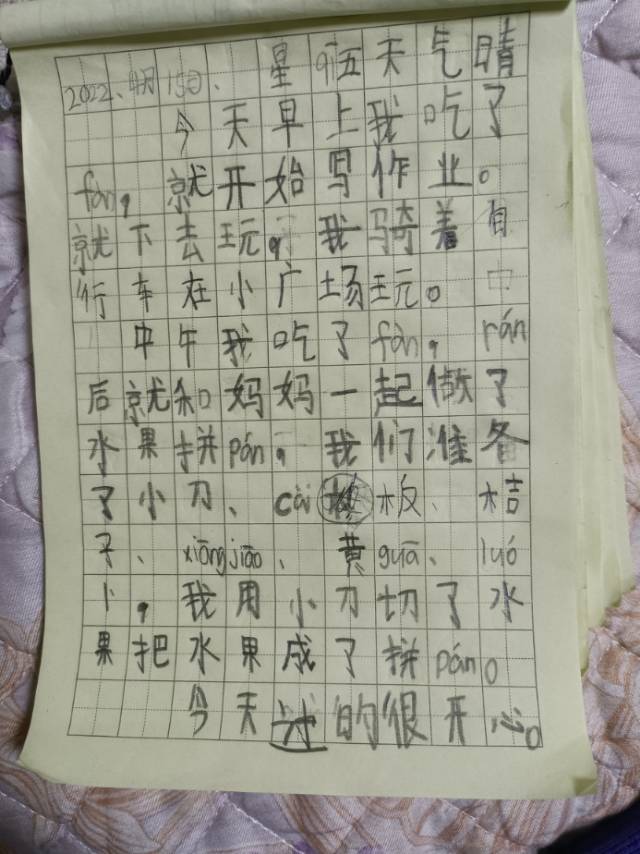 2022、4月15日、星qī五天气晴
今天早上我吃了
fàn，就开始写作业。
就下去玩，我骑着自
行车在小广场玩。中
中午我吃了fàn，rán
后就和妈妈一起做了
水果拼pán，我们准备
了小刀、cài板、桔
子、xiāngjiāo、黄guā、luó
卜，我用小刀切了水
果把水果成了拼pán。
今天过的很开心。